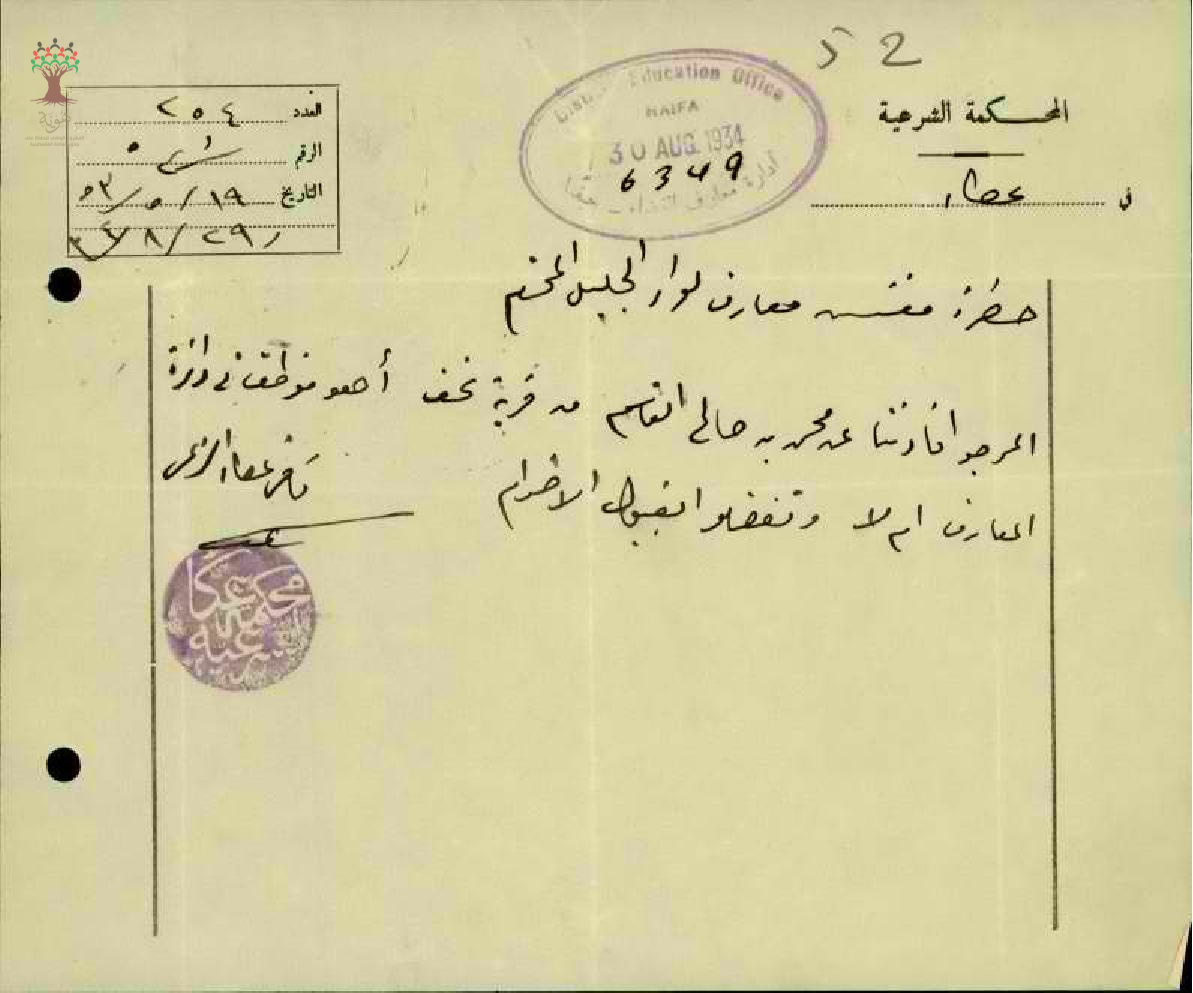 52
المحكمة الشرعية
في عكاء
District Education Office
HAIFA
30 AUG. 1934
6349
إدارة معارف القضاء حيفا
العدد ٢٥٤
الرقم
التاريخ ١٩/٥/٥٣
٢٩/٨/٣٤
حضرة مفتش معارف لواء الجليل المحترم
المرجو افادتنا عن محمد بن صالح القاسم من قرية نحف أهو موظف في دائرة
المعارف ام لا وتفضلوا بقبول الاحترام
قاضي عكاء الشرعي
محكمة عكا
شرعية